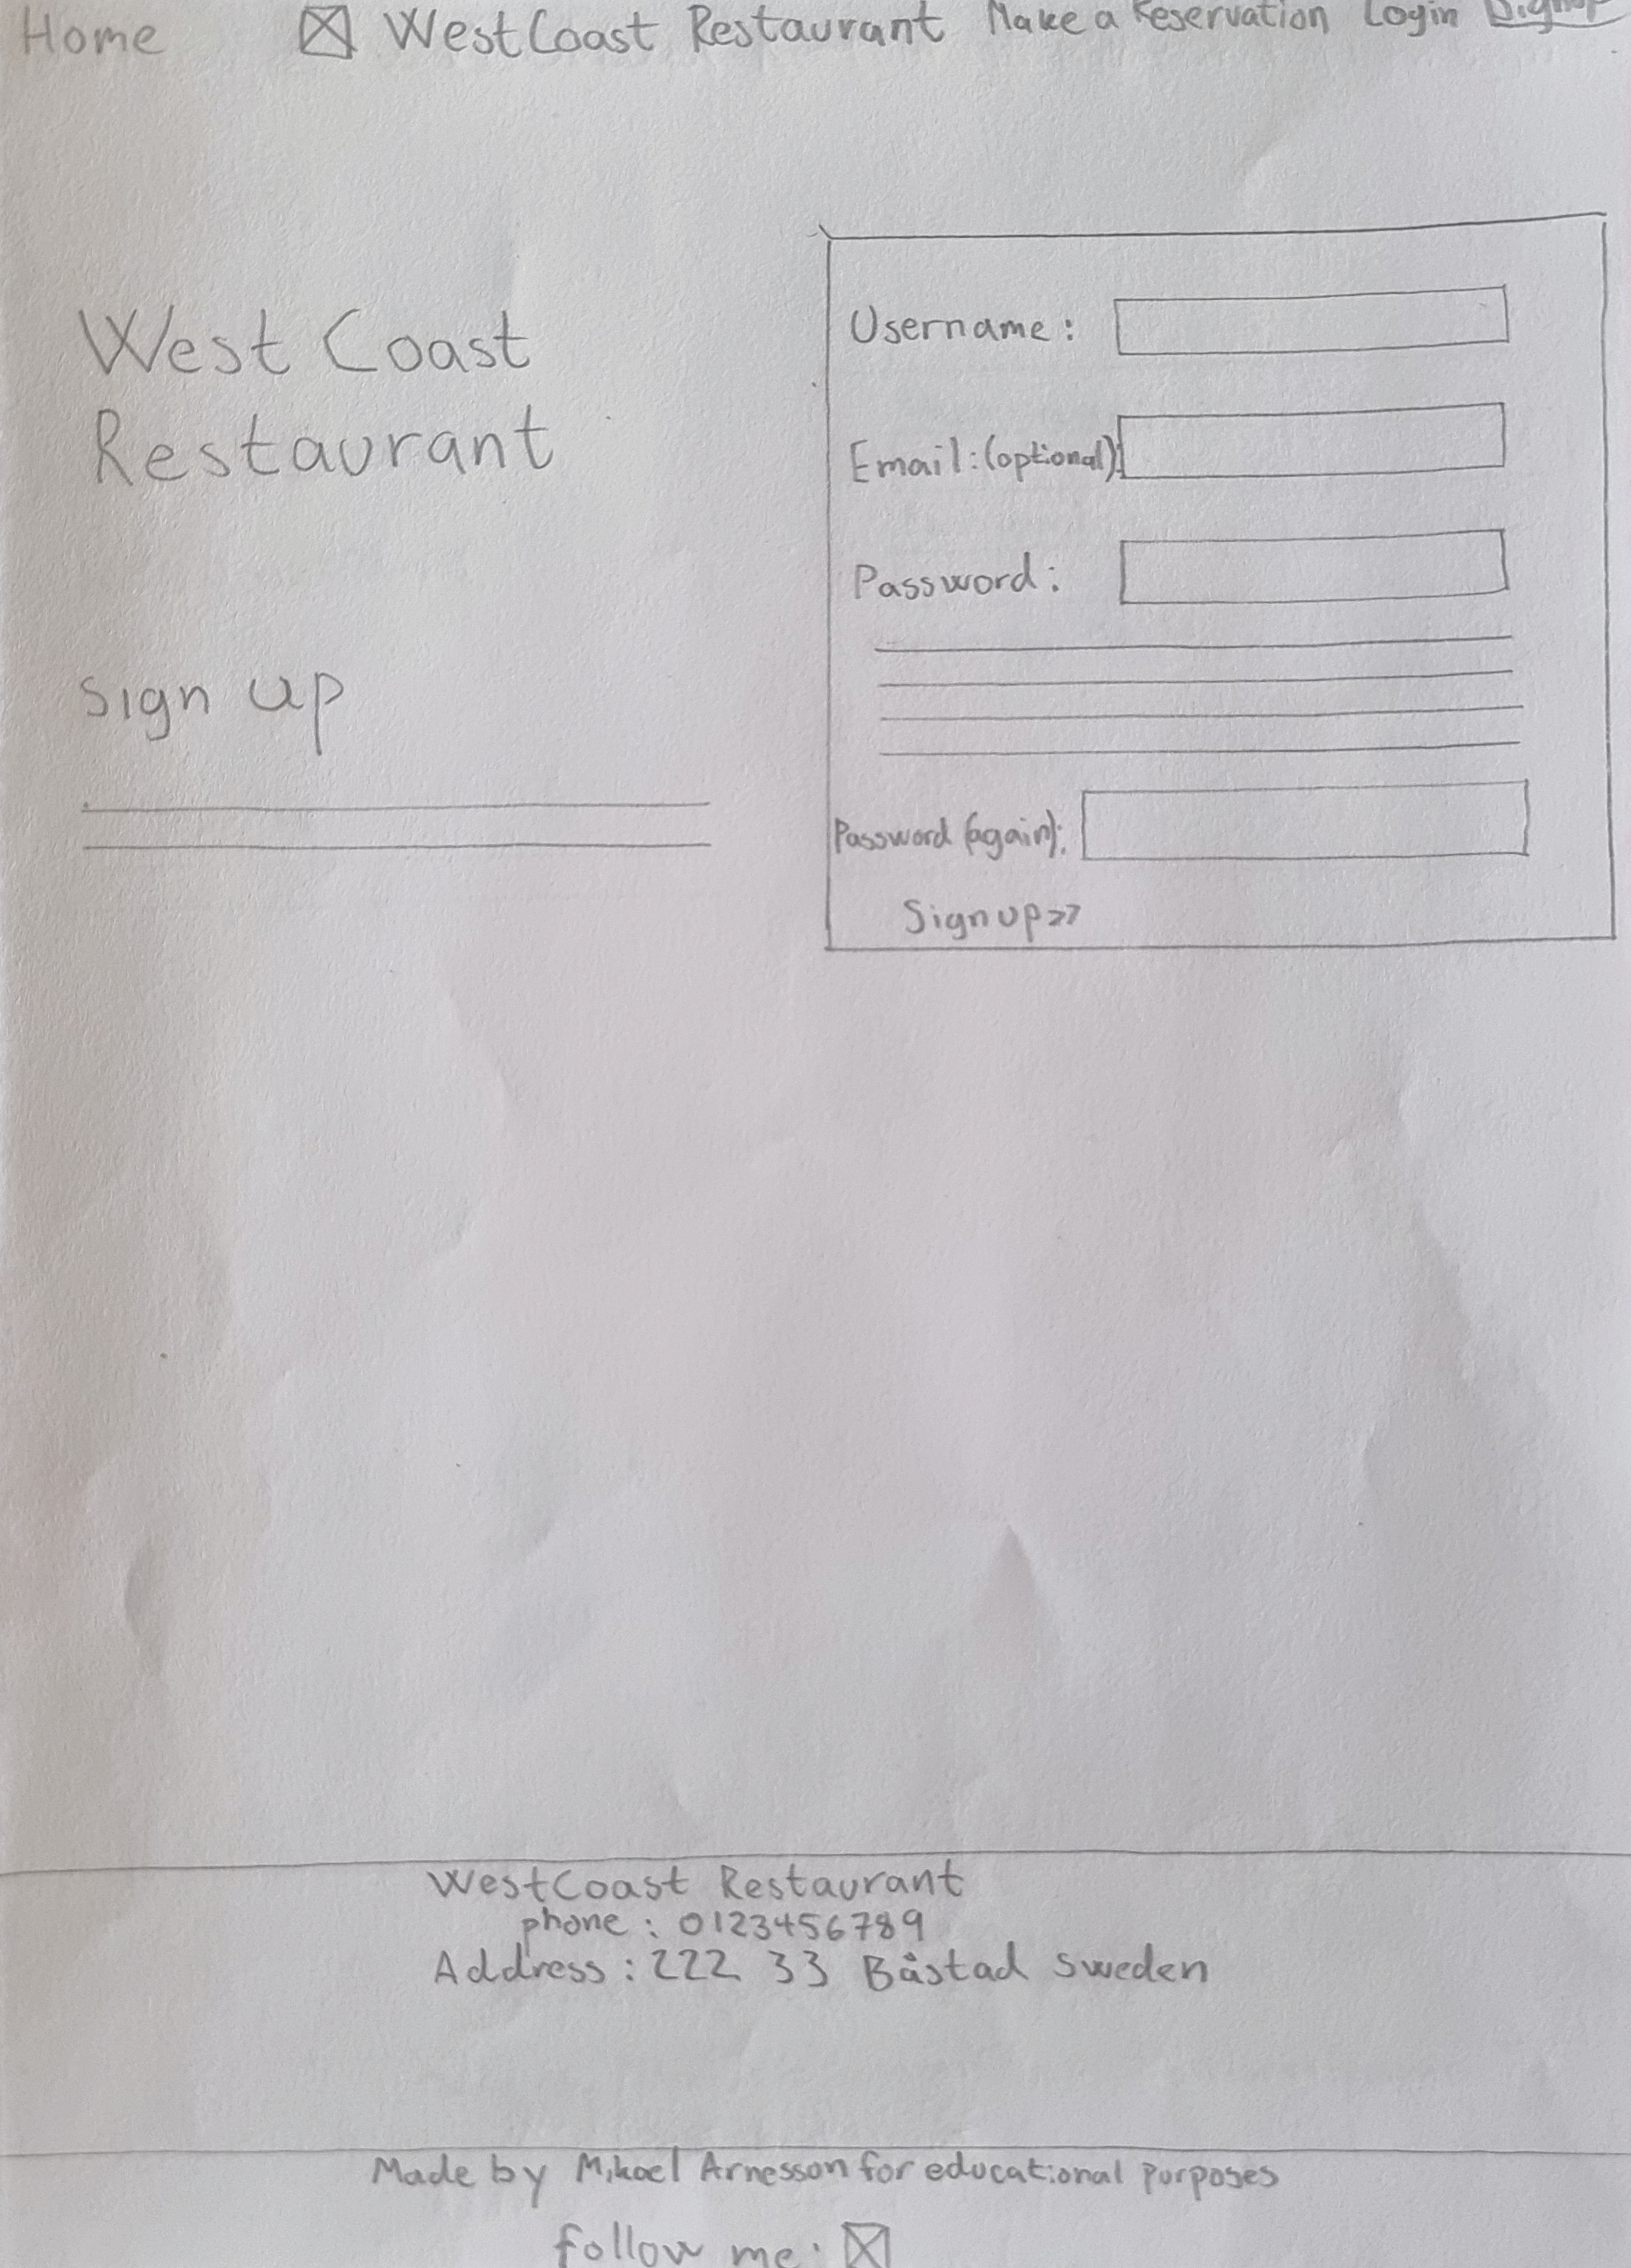 Home WestCoast Restaurant Make a Reservation Login Signup
West Coast
Restaurant
Sign up
Username:
Email:(optional):
Password:
Password (again):
Signup>>
WestCoast Restaurant
phone: 0123456789
Address: 222 33 Båstad Sweden
Made by Mikael Arnesson for educational purposes
follow me: